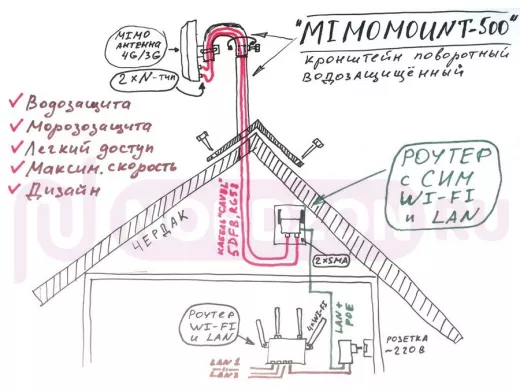 "MIMOMOUNT-500"
кронштейн поворотный
водозащищённый
MIMO
АНТЕННА
4G/3G
2×N-тип
✓ Водозащита
✓ Морозозащита
✓ Легкий доступ
✓ Максим. скорость
✓ Дизайн
РОУТЕР
с СИМ
WI-FI
и LAN
ЧЕРДАК
КАБЕЛЬ "CAVEL"
5DFB, RG58
2×SMA
РОУТЕР
WI-FI
и LAN
4×WI-FI
LAN+
POE
РОЗЕТКА
~220В
LAN1